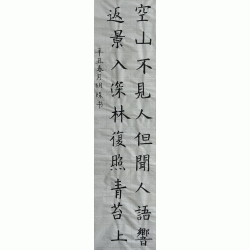 空山不見人但聞人語響
返景入深林復照青苔上
辛丑春月明珠书